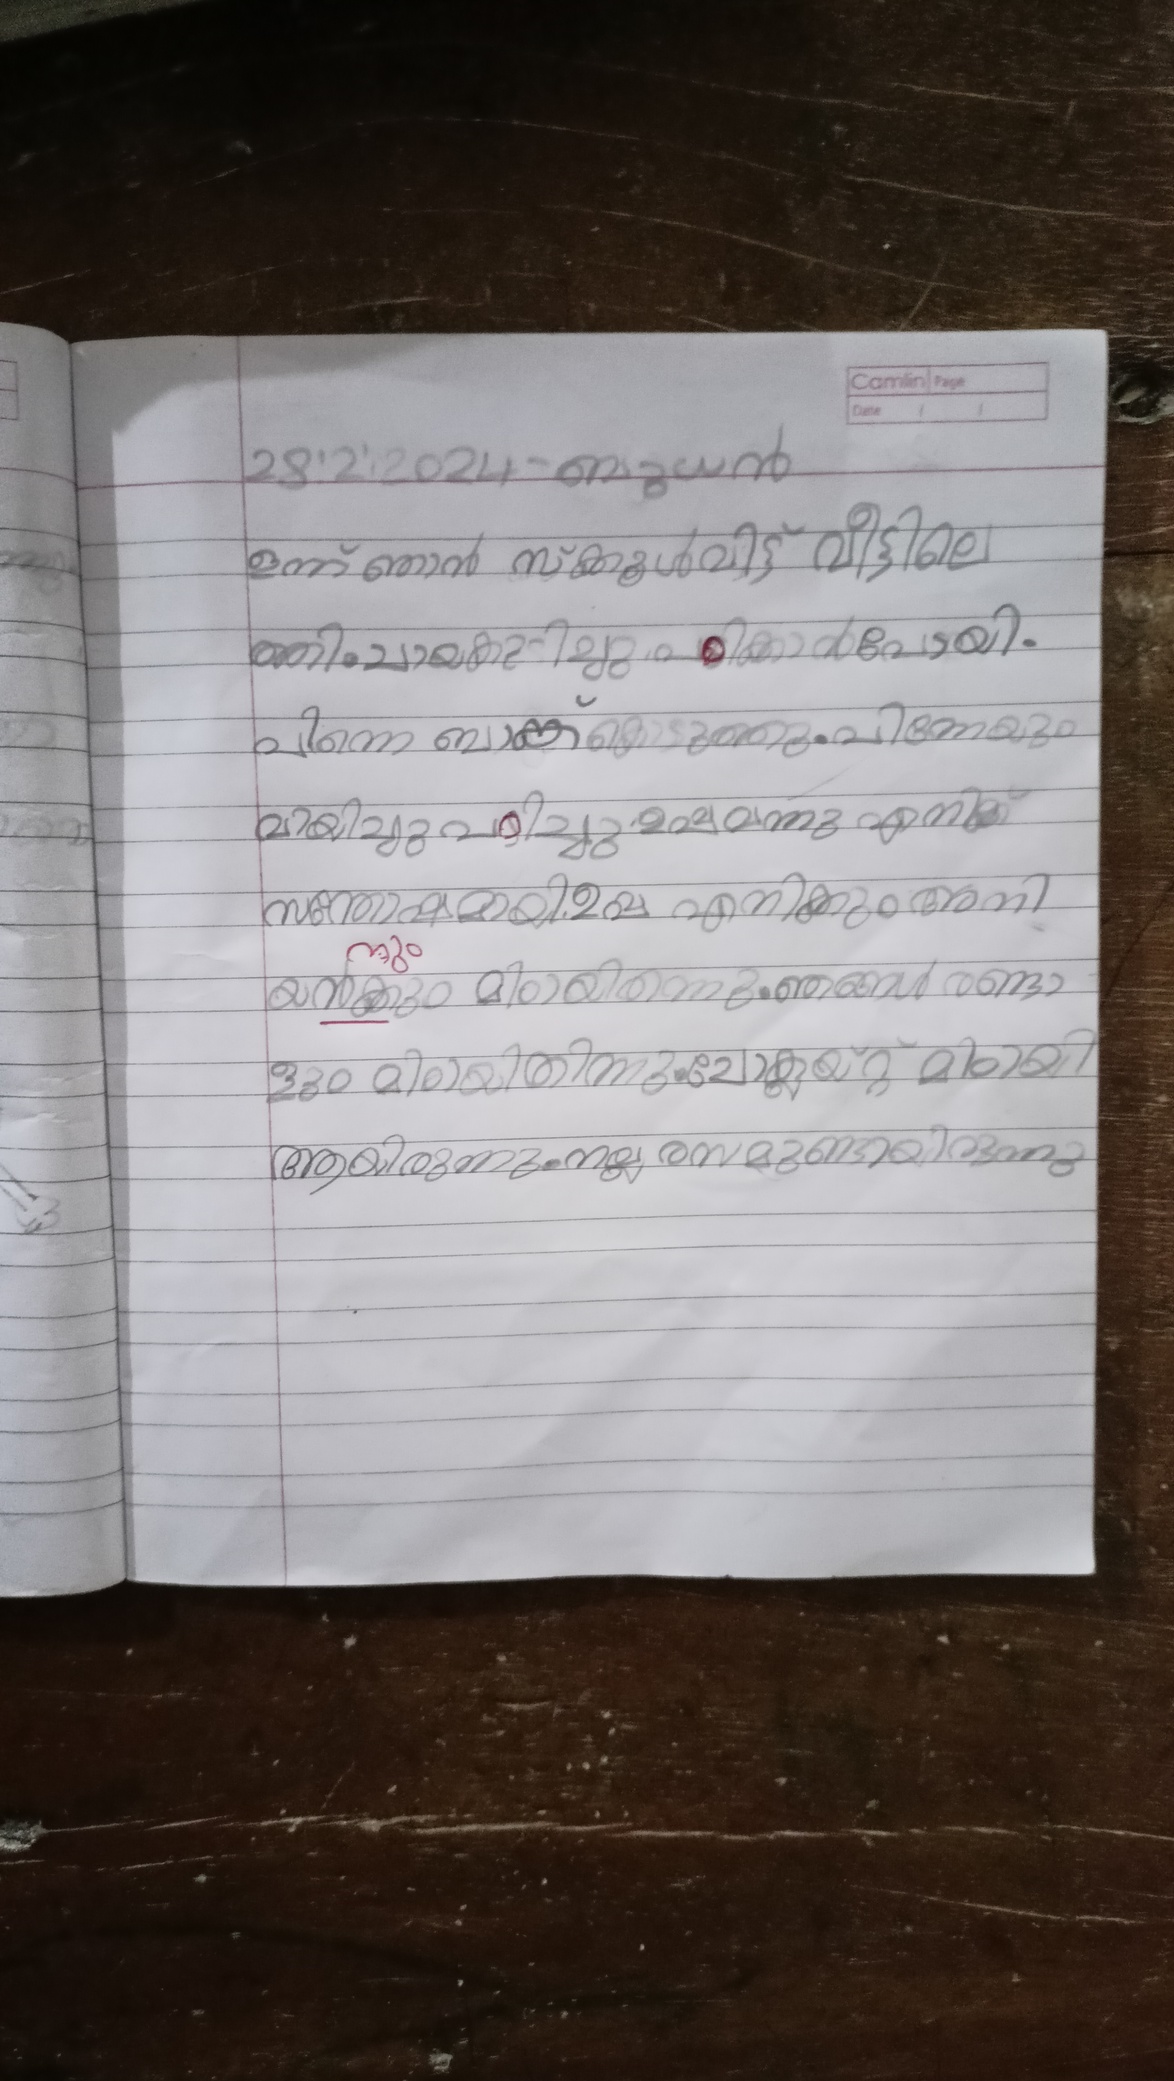 Camlin Page
Date / /
28.2.2024-ബുധൻ
ഇന്ന് ഞാൻ സ്ക്കൂൾ വിട്ട് വീട്ടിലെ
ത്തി. ചായകുടിച്ചു. പഠിക്കാൻ പോയി.
പിന്നെ ബാങ്ക് കൊടുത്തു. പിന്നേയും
വായിച്ചു പഠിച്ചു. ഉപ്പ വന്നു എനിക്ക്
സന്തോഷമായി. ഉപ്പ എനിക്കും അനി
നും
യൻക്കും മിഠായി തന്നു. ഞങ്ങൾ രണ്ടാ
ളും മിഠായി തിന്നു. ചോക്ലയ്റ്റ് മിഠായി
ആയിരുന്നു. നല്ല രസമുണ്ടായിരുന്നു